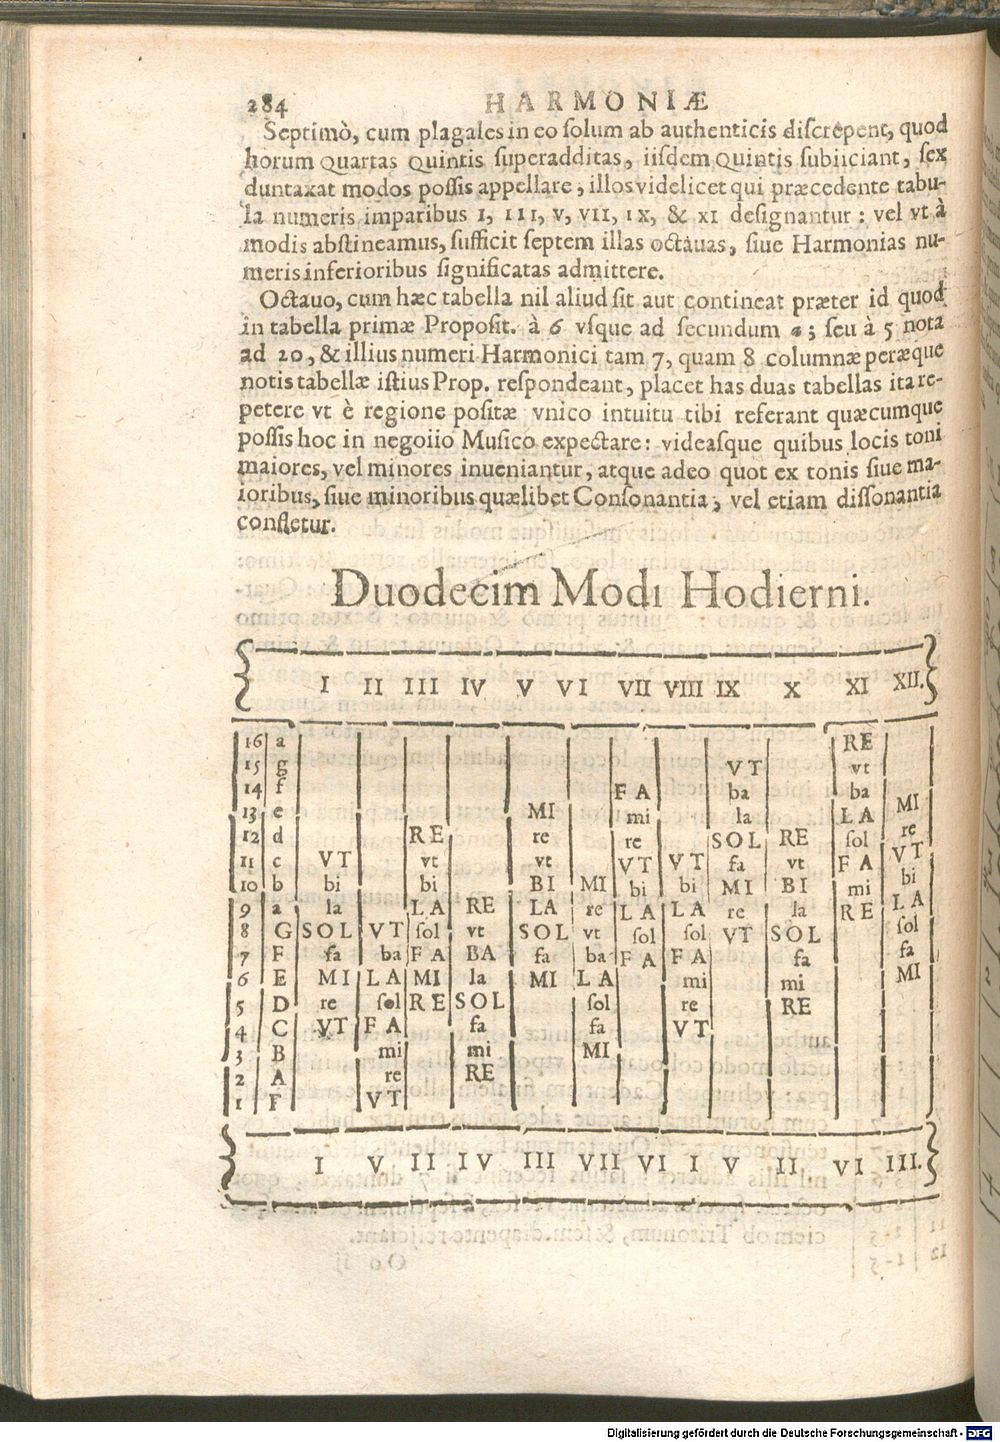 284 HARMONIÆ
Septimò, cum plagales in eo solum ab authenticis discrepent, quod
horum Quartas Quintis superadditas, iisdem Quintis subiiciant, sex
duntaxat modos possis appellare, illos videlicet qui præcedente tabu-
la numeris imparibus I, III, V, VII, IX, & XI designantur: vel vt à
modis abstineamus, sufficit septem illas octauas, siue Harmonias nu-
meris inferioribus significatas admittere.
Octauo, cum hæc tabella nil aliud sit aut contineat præter id quod
in tabella primæ Proposit. à 6 vsque ad secundum a; seu à 5 nota
ad 20, & illius numeri Harmonici tam 7, quam 8 columnæ peræque
notis tabellæ istius Prop. respondeant, placet has duas tabellas ita re-
petere vt è regione positæ vnico intuitu tibi referant quæcumque
possis hoc in negoiio Musico expectare: videasque quibus locis toni
maiores, vel minores inueniantur, atque adeo quot ex tonis siue ma-
ioribus, siue minoribus quælibet Consonantia, vel etiam dissonantia
constetur.
Duodecim Modi Hodierni.
I II III IV V VI VII VIII IX X XI XII.
16 a RE
15 g VT vt
14 f FA ba ba
13 e MI mi la LA MI
12 d RE re re SOL RE sol re
11 c VT vt vt VT VT fa vt FA VT
10 b bi bi BI MI bi bi MI BI mi bi
9 a la LA RE LA re LA LA re la RE LA
8 G SOL VT sol vt SOL vt sol sol VT SOL sol
7 F fa ba FA BA fa ba FA FA fa fa
6 E MI LA MI la MI LA mi mi MI
5 D re sol RE SOL sol re RE
4 C VT FA fa fa VT
3 B mi mi MI
2 A re RE
1 F VT
I V II IV III VII VI I V II VI III.
Digitalisierung gefördert durch die Deutsche Forschungsgemeinschaft - DFG